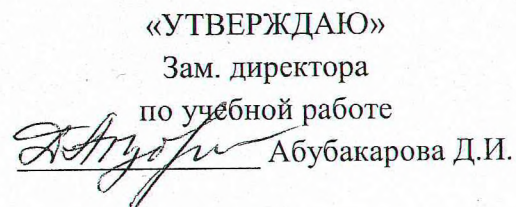 «УТВЕРЖДАЮ»
Зам. директора
по учебной работе
Абубакарова Д.И.